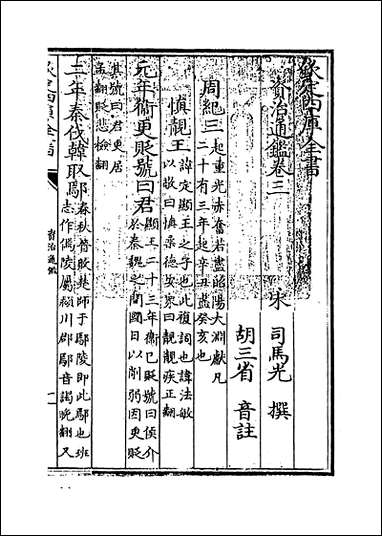 欽定四庫全書
資治通鑑卷三
宋 司馬光 撰
胡三省 音註
周紀三起重光赤奮若盡昭陽大淵獻凡二十有三年起辛丑盡癸亥也
慎靚王諱定顯王之子也此復謚也諡法敏以敬曰慎柔德安衆曰靚靚疾正翻
元年衛更貶號曰君顯王二十三年衛已貶號曰侯介於秦魏之間國日以削弱因更貶
其號曰君更居孟翻貶悲檢翻
二年秦伐韓取鄢春秋晉敗楚師于鄢陵即此鄢也班志作傿陵屬潁川郡鄢音謁晚翻又
欽定四庫全書
資治通鑑
一